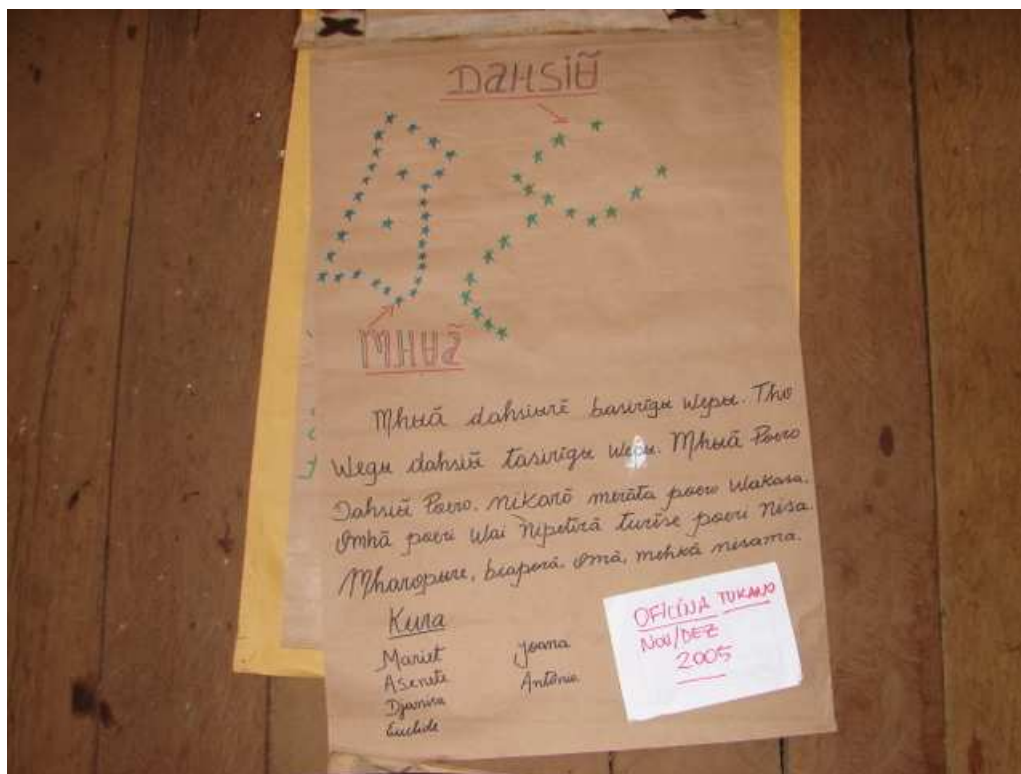 DAHSIŨ
MHUÃ
Mhuã dahsiurẽ basirĩgu wepu. Tho
Wegu dahsiũ tasirĩgu wepu. Mhuã Poero
Dahsiũ Poero. nikarõ merãta poero wakasa.
Omhã poeri wai nipetirã turise poeri nisa.
Mharopure, biaporá, omã, mehkã nisama.
Kura
Mariet Joana
Asenete Antônio
Djanira
Euclide
OFICINA TUKANO
NOV/DEZ
2005